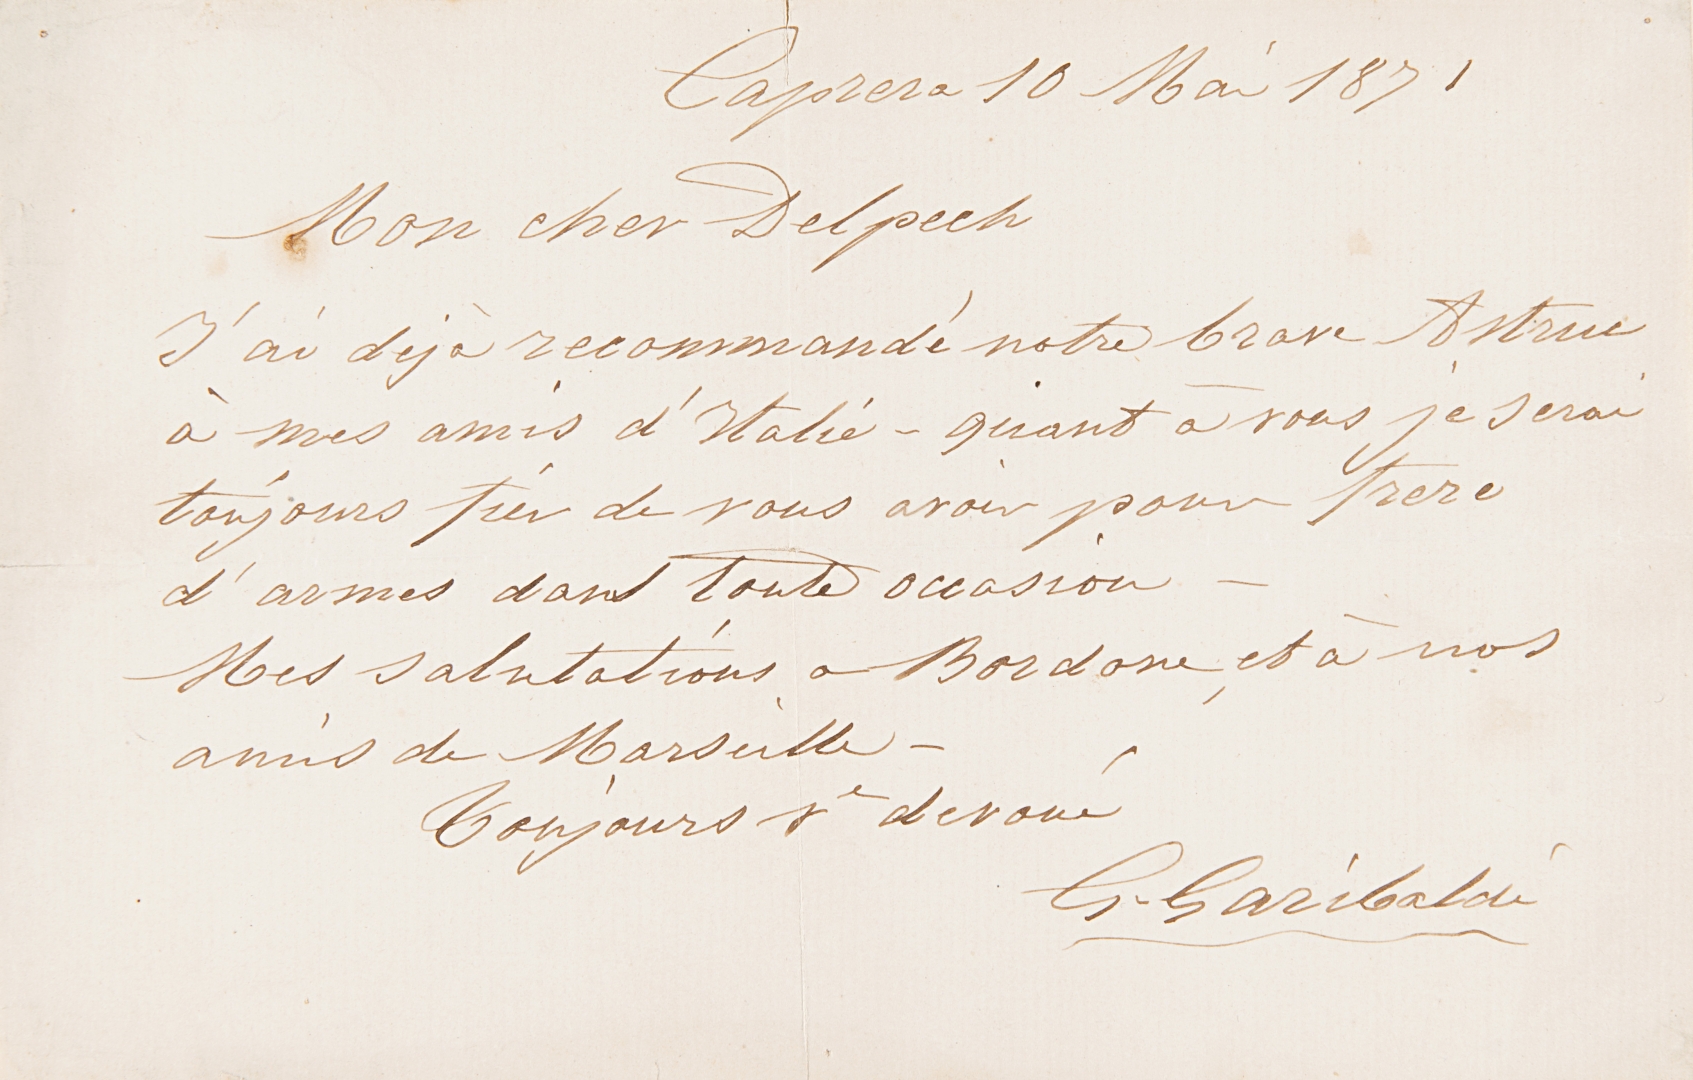 Caprera 10 Mai 1871
Mon cher Delpech
J'ai dejà recommandé notre brave Astruc
à mes amis d'Italie - quant à vous je serai
toujours fier de vous avoir pour frere
d'armes dans toute occasion -
Mes salutations a Bordone, et à nos
amis de Marseille -
Toujours v.e devoué
G. Garibaldi